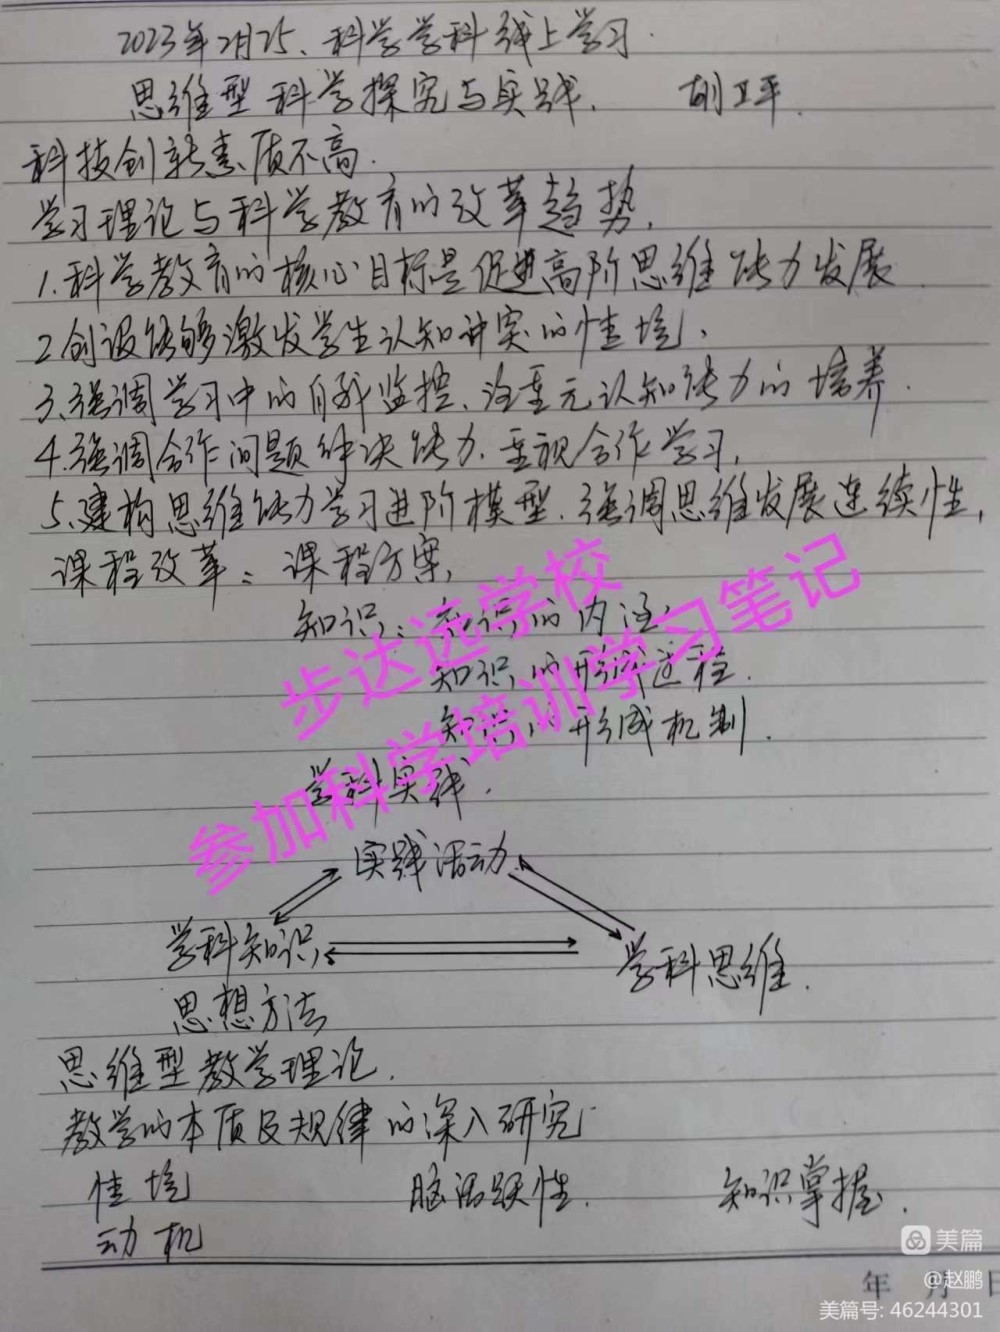 2023年2月25、科学学科线上学习.
思维型科学探究与实践. 胡卫平.
科技创新素质不高.
学习理论与科学教育的改革趋势.
1.科学教育的核心目标是促进高阶思维能力发展.
2.创设能够激发学生认知冲突的情境.
3.强调学习中的自我监控、注重元认知能力的培养.
4.强调合作问题解决能力.重视合作学习.
5.建构思维能力学习进阶模型.强调思维发展连续性,
课程改革：课程方案,
知识：知识的内涵,
知识的形成过程.
知识的形成机制.
学科实践.
实践活动.
学科知识
学科思维.
思想方法
思维型教学理论.
教学的本质及规律的深入研究
情境 脑活跃性. 知识掌握.
动机
步达远学校
参加科学培训学习笔记
年 月 日
美篇
@赵鹏
美篇号: 46244301